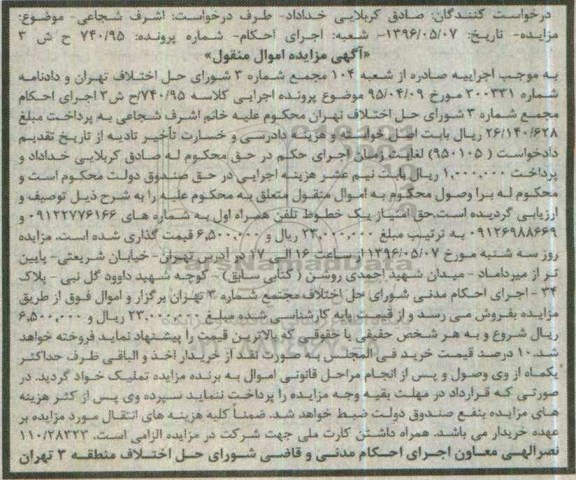 درخواست کنندگان: صادق کربلایی خداداد- طرف درخواست: اشرف شجاعی- موضوع:
مزایده- تاریخ: ۱۳۹۶/۰۵/۰۷- شعبه: اجرای احکام- شماره پرونده: ۷۴۰/۹۵ ح ش ۳
«آگهی مزایده اموال منقول»
به موجب اجراییه صادره از شعبه ۱۰۴ مجمع شماره ۳ شورای حل اختلاف تهران و دادنامه
شماره ۳۰۰۳۳۱ مورخ ۹۵/۰۴/۰۹ موضوع پرونده اجرایی کلاسه ۷۴۰/۹۵/ح ش۳ اجرای احکام
مجمع شماره ۳ شورای حل اختلاف تهران محکوم علیه خانم اشرف شجاعی به پرداخت مبلغ
۲۶/۱۴۰/۶۲۸ ریال بابت اصل خواسته و هزینه دادرسی و خسارت تأخیر تادیه از تاریخ تقدیم
دادخواست (۹۵۰۱۰۵) لغایت زمان اجرای حکم در حق محکوم له صادق کربلایی خداداد و
پرداخت ۱,۰۰۰,۰۰۰ ریال بابت نیم عشر هزینه اجرایی در حق صندوق دولت محکوم است و
محکوم له برا وصول محکوم به اموال منقول متعلق به محکوم علیه را به شرح ذیل توصیف و
ارزیابی گردیده است.حق امتیاز یک خطوط تلفن همراه اول به شماره های ۰۹۱۲۲۷۷۶۱۶۶ و
۰۹۱۲۶۹۸۸۶۶۹ به ترتیب مبلغ ۲۳,۰۰۰,۰۰۰ ریال و ۶,۵۰۰,۰۰۰ قیمت گذاری شده است. مزایده
روز سه شنبه مورخ ۱۳۹۶/۰۵/۰۷ از ساعت ۱۶ الی ۱۷ در آدرس تهران- خیابان شریعتی- پایین
تر از میرداماد - میدان شهید احمدی روشن ( کتابی سابق)- کوچه شهید داوود گل نبی - پلاک
۳۴ - اجرای احکام مدنی شورای حل اختلاف مجتمع شماره ۳ تهران برگزار و اموال فوق از طریق
مزایده بفروش می رسد و از قیمت پایه کارشناسی شده مبلغ ۲۳,۰۰۰,۰۰۰ ریال و ۶,۵۰۰,۰۰۰
ریال شروع و به هر شخص حقیقی یا حقوقی که بالاترین قیمت را پیشنهاد نماید فروخته خواهد
شد. ۱۰ درصد قیمت خرید فی المجلس به صورت نقد از خریدار اخذ و الباقی ظرف حداکثر
یکماه از وی وصول و پس از انجام مراحل قانونی اموال به برنده مزایده تملیک خواد گردید. در
صورتی که قرارداد در مهلت بقیه وجه مزایده را پرداخت ننماید سپرده وی پس از کثر هزینه
های مزایده بنفع صندوق دولت ضبط خواهد شد. ضمناً کلیه هزینه های انتقال مورد مزایده بر
عهده خریدار می باشد. همراه داشتن کارت ملی جهت شرکت در مزایده الزامی است. ۱۱۰/۲۸۳۲۳
نصرالهی معاون اجرای احکام مدنی و قاضی شورای حل اختلاف منطقه ۳ تهران